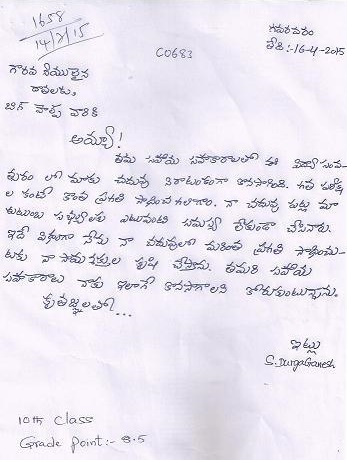 1658
14/7/15
C0683
గవరవరం
తేది :- 16-4-2015
గౌరవ శ్రీయుతులైన
దాతలకు,
బిగ్ హెల్ప్ వారికి
అయ్యా!
తమ సహాయ సహకారాలతో ఈ విద్యా సంవ-
త్సరం లో మాకు చదువు నిరాటంకంగా కొనసాగింది. గత పరీక్ష
ల కంటే కొంత ప్రగతి సాధించ గలిగాను. నా చదువు పట్ల మా
కుటుంబ సభ్యులకు ఎటువంటి సమస్య లేకుండా చేసినారు.
ఇదే విధంగా నేను నా చదువులో మరింత ప్రగతి సాధించు-
టకు నా సాయశక్తుల కృషి చేస్తాను. తమరి సహాయ
సహకారాలు నాకు ఇలాగే కొనసాగాలని కోరుకుంటున్నాను.
కృతజ్ఞతలతో...
ఇట్లు
S. Durga Ganesh
10th Class
Grade point :- 8.5